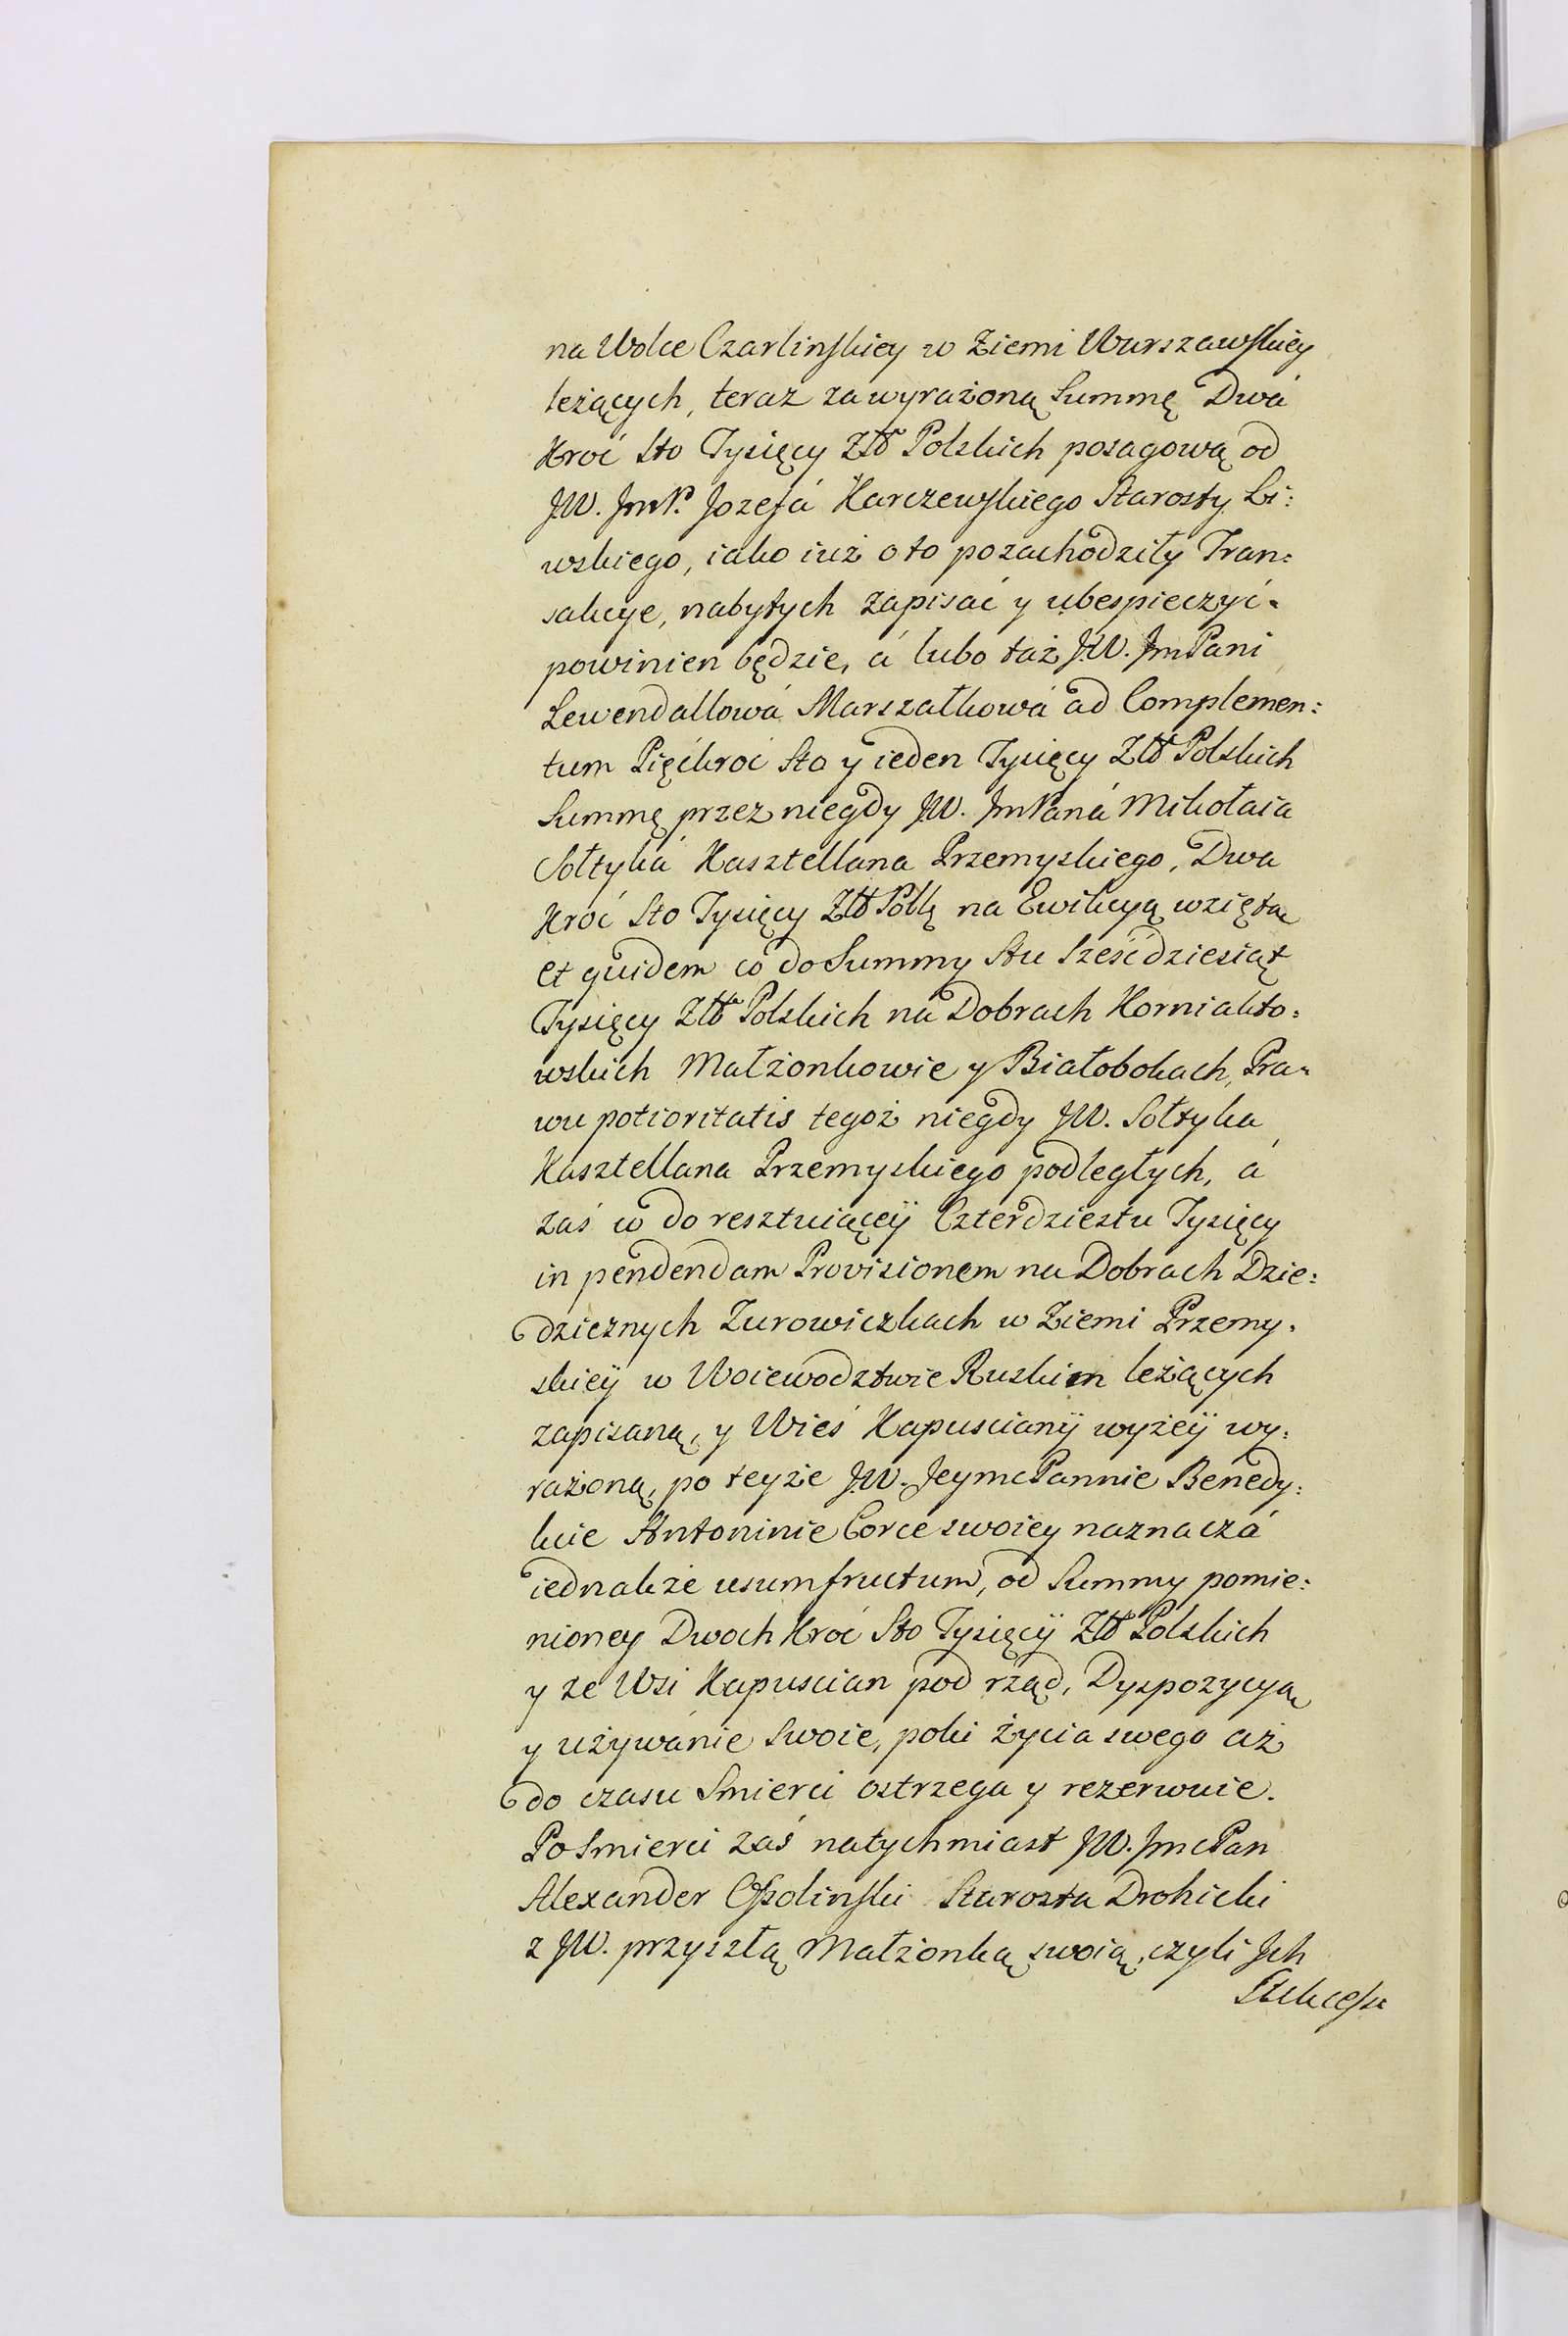 na Wolce Czarlinskiey w Ziemi Warszawskiey
leżących, teraz za wyrażoną Summę Dwá
Kroć Sto Tysięcy Złł Polskich posagową od
JW. JmP. Jozefá Karczewskiego Starosty Li:
wskiego, iako iuż o to pozachodziły Tran:
sakcye, nabytych zapisać y ubespieczyć
powinien będzie, á lubo taż J.W. JmPani
Lewendallowá Marszałkowá ad Complemen:
tum Pięćkroć Sto y ieden Tysięcy Złł Polskich
Summę przez niegdy JW. JmPaná Mikołaia
Sołtyká Kasztellana Przemyskiego, Dwa
Kroć Sto Tysięcy Złł Polłą na Ewikcyą wziętą
et quidem co do Summy Stu Sześćdziesiąt
Tysięcy Złł Polskich na Dobrach Korniakto:
wskich Małżonkowie y Białobokach, Pra:
wu potioritatis tegoż niegdy JW. Sołtyka
Kasztellana Przemyskiego podległych, á
zaś co do resztuiącey Czterdziestu Tysięcy
in pendendam Provisionem na Dobrach Dzie:
dzicznych Zurowiczkach w Ziemi Przemy:
skiey w Woiewodztwie Ruskim leżących
zapisaną, y Wieś Kapusciany wyżey wy:
rażoną, po teyże J.W. JeymcPannie Benedy:
kcie Antoninie Corce swoiey naznaczá
iednakże usumfructum, od Summy pomie:
nioney Dwoch Kroć Sto Tysięcy Złł Polskich
y ze Wsi Kapuscian pod rząd, Dyspozycyą
y używánie Swoie, poki życia swego aż
do czasu Smierci ostrzega y rezerwuie.
Po Smierci zaś natychmiast JW. JmcPan
Alexander Ossolinski Starosta Drohicki
z JW. przyszłą Małżonką swoią, czyli Jch
Sukcesso